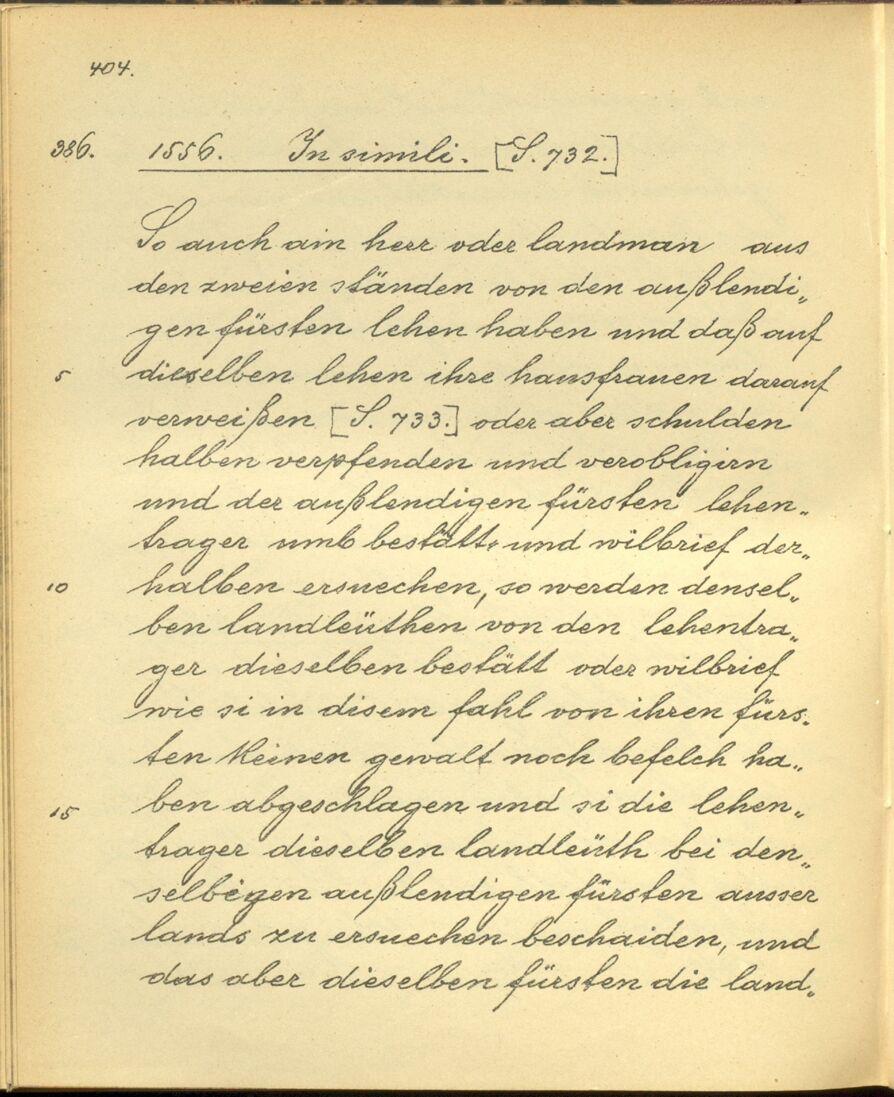 404.
386. 1556. In simili. [S. 732.]
So auch ain herr oder landman aus
den zweien ständen von den außlendi„
gen fürsten lehen haben und daß auf
5 dieselben lehen ihre hausfrauen darauf
verweißen [S. 733.] oder aber schulden
halben verpfenden und verobligirn
und der außlendigen fürsten lehen„
trager umb bestätt„ und wilbrief der„
10 halben ersuechen, so werden densel„
ben landleüthen von den lehentra„
ger dieselben bestätt oder wilbrief
wie si in disem fahl von ihren fürs„
ten keinen gewalt noch befelch ha„
15 ben abgeschlagen und si die lehen„
trager dieselben landleüth bei den„
selbigen außlendigen fürsten ausser
lands zu ersuechen beschaiden, und
das aber dieselben fürsten die land„